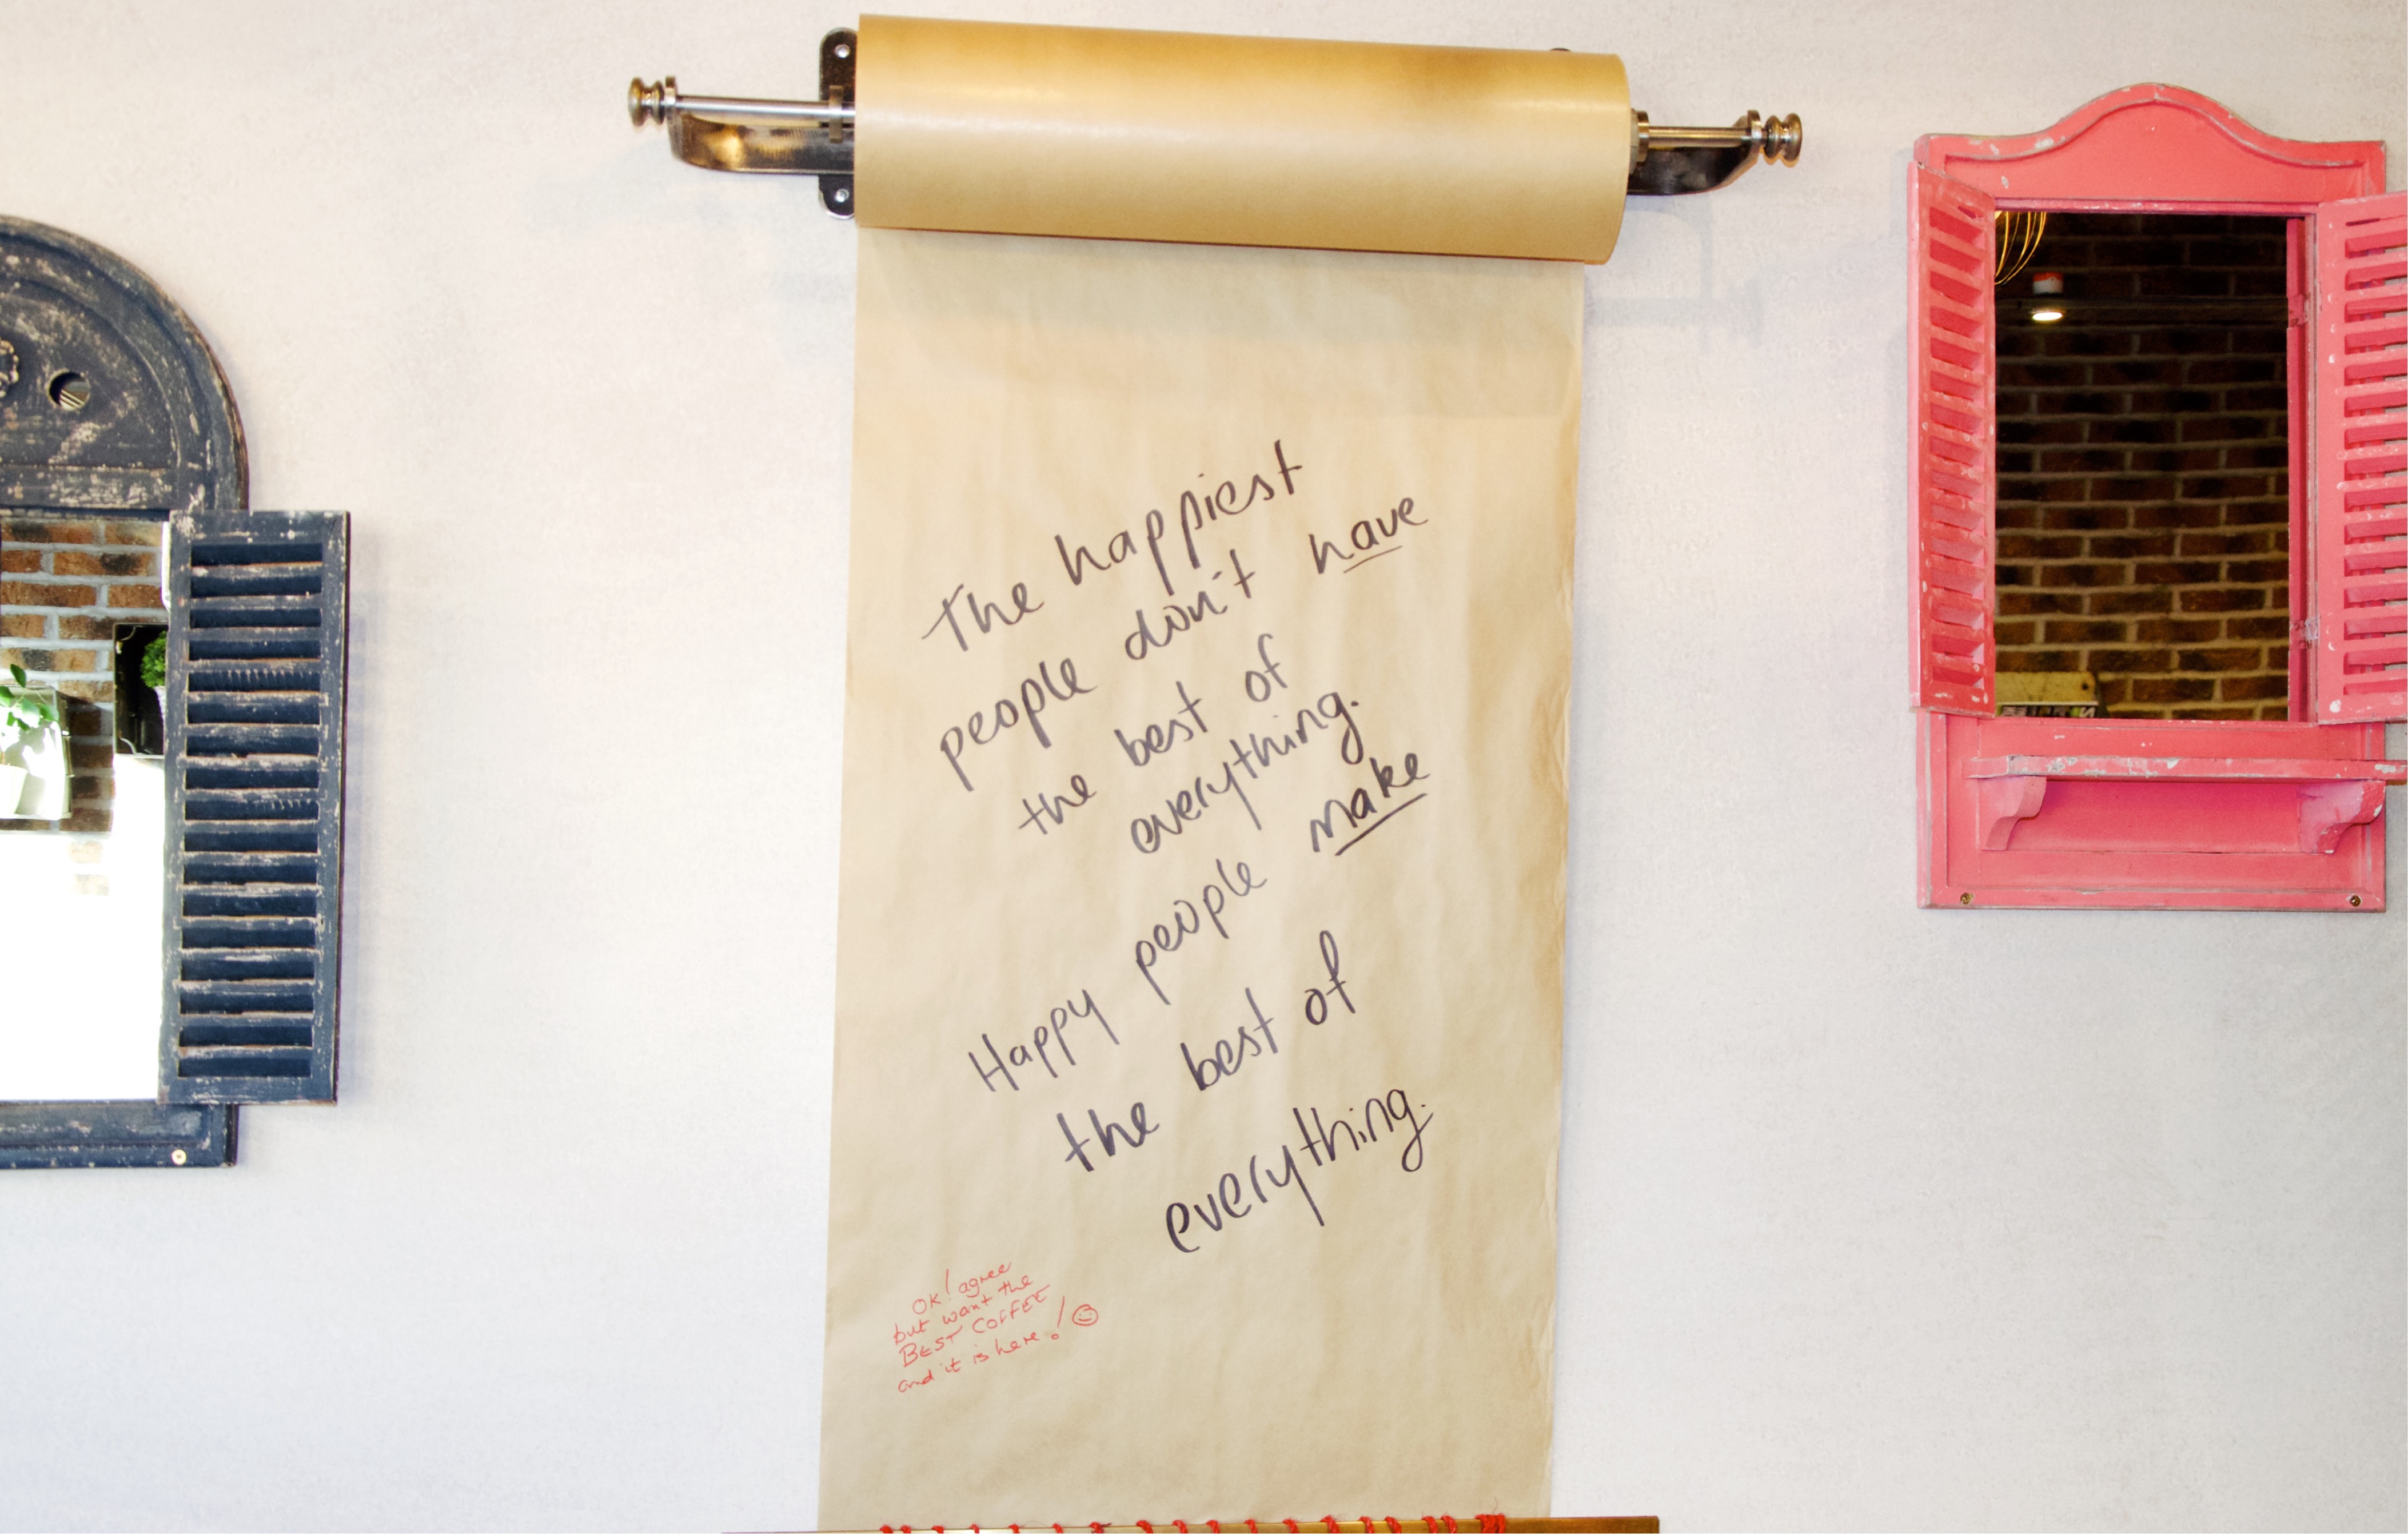 The happiest
people don't have
the best of
everything.
Happy people make
the best of
everything.
OK! agree
but want the
BEST COFFEE
and it is here!